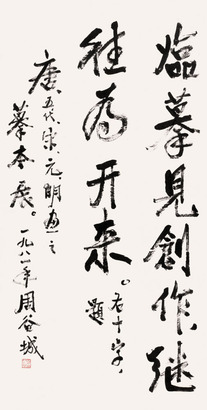 臨摹見創作，繼
往為开来。右十字，
題
唐、五代、宋、元、明画之
摹本展。一九八一年周谷城